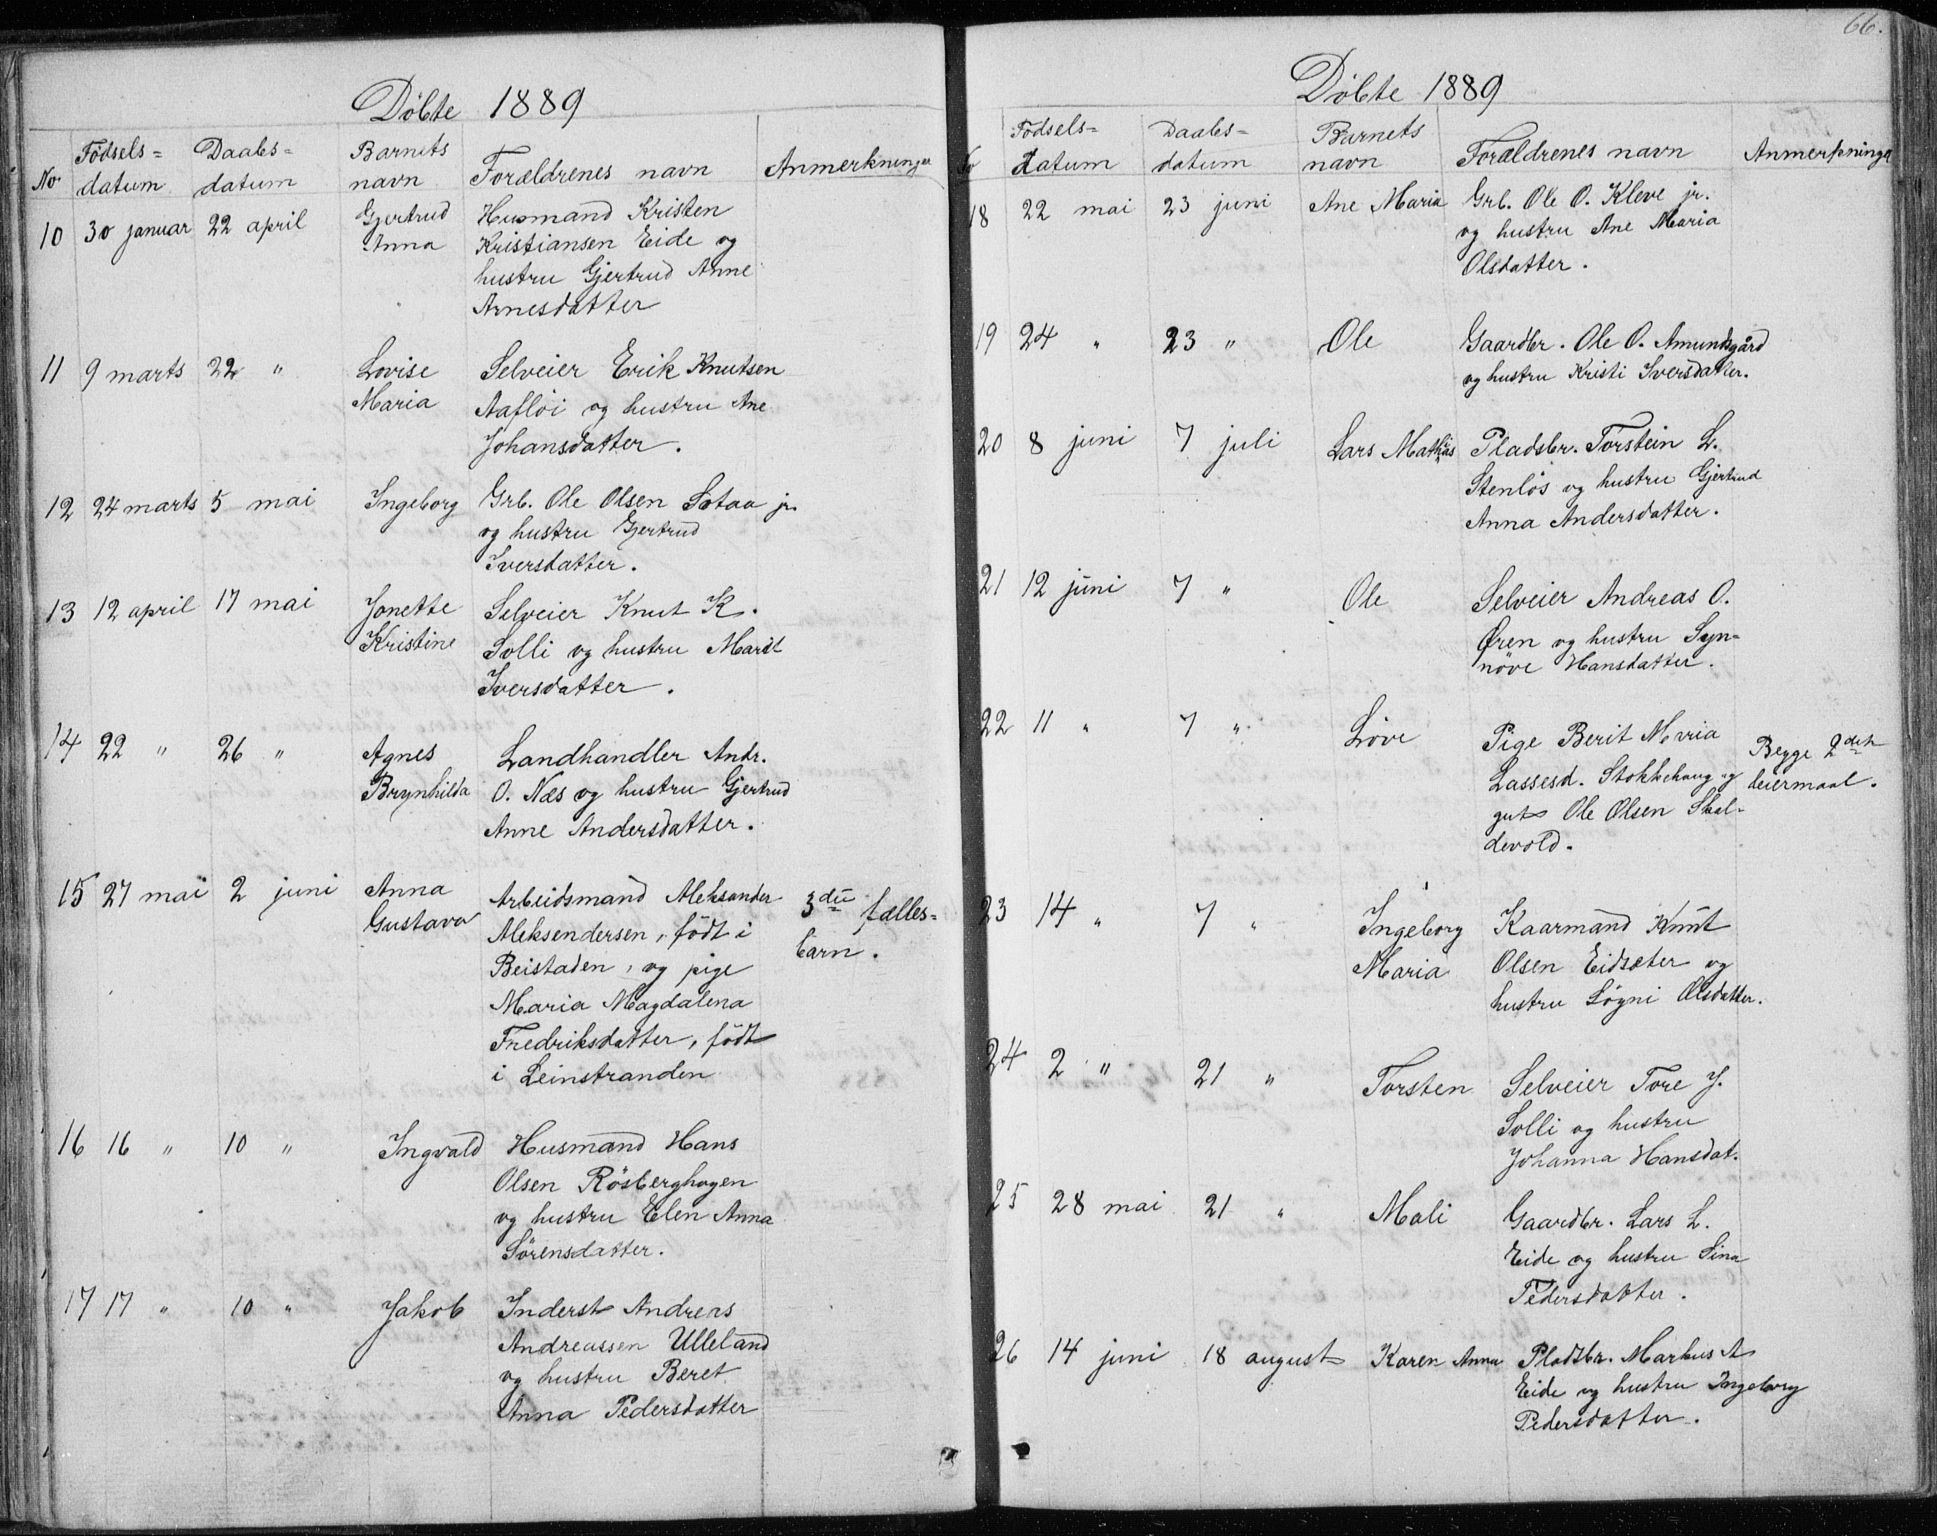 Döbte 1889
No. Födsels=datum Daabs=datum Barnets navn Forældrenes navn Anmerkninger
10 30 januar 22 april Gjertrud Husmand Kristen
Anna Kristiansen Eide og
hustru Gjertrud Anne
Arnesdatter
11 9 marts 22 " Lovise Selveier Erik Knutsen
Maria Aaflöi og hustru Ane
Johansdatter.
12 24 marts 5 mai Ingeborg Grb. Ole Olsen Sotaa jr.
og hustru Gjertrud
Iversdatter.
13 12 april 17 mai Jonette Selveier Knut K.
Kristine Solli og hustru Marit
Iversdatter.
14 22 " 26 " Agnes Landhandler Andr.
Brynhilda O. Næs og hustru Gjertrud
Anne Andersdatter.
15 27 mai 2 juni Anna Arbeidsmand Aleksander 3die fælles=
Gustava Aleksendersen, födt i barn.
Beistaden, og pige
Maria Magdalena
Fredriksdatter, födt
i Leinstranden
16 16 " 10 " Ingvald Husmand Hans
Olsen Rösberghagen
og hustru Elen Anna
Sörensdatter.
17 17 " 10 " Jakob Inderst Andreas
Andreassen Ulleland
og hustru Beret
Anna Pedersdatter
66.
Döbte 1889
No Födsels=datum Daabs=datum Barnets navn Forældrenes navn Anmerkninger
18 22 mai 23 juni Ane Maria Grb. Ole O. Kleve jr.
og hustru Ane Maria
Olsdatter.
19 24 " 23 " Ole Gaardbr. Ole O. Amundsgård
og hustru Kristi Iversdatter.
20 8 juni 7 juli Lars Mathias Pladsbr. Torstein L.
Stenlös og hustru Gjertrud
Anna Andersdatter.
21 12 juni 7 " Ole Selveier Andreas O.
Ören og hustru Syn=
növe Hansdatter.
22 11 " 7 " Löve Pige Berit Maria
Lassesd. Stokkehaug og Begge 2det
gut Ole Olsen Skal- leiermaal.
devold.
23 14 " 7 " Ingeborg Kaarmand Knut
Maria Olsen Eidsæter og
hustru Lögni Olsdatter.
24 2 " 21 " Torsten Selveier Tore J.
Solli og hustru
Johanna Hansdat.
25 28 mai 21 " Mali Gaardbr. Lars L.
Eide og hustru Sina
Pedersdatter.
26 14 juni 18 august Karen Anna Pladsbr. Markus A
Eide og hustru Ingeborg
Pedersdatter.